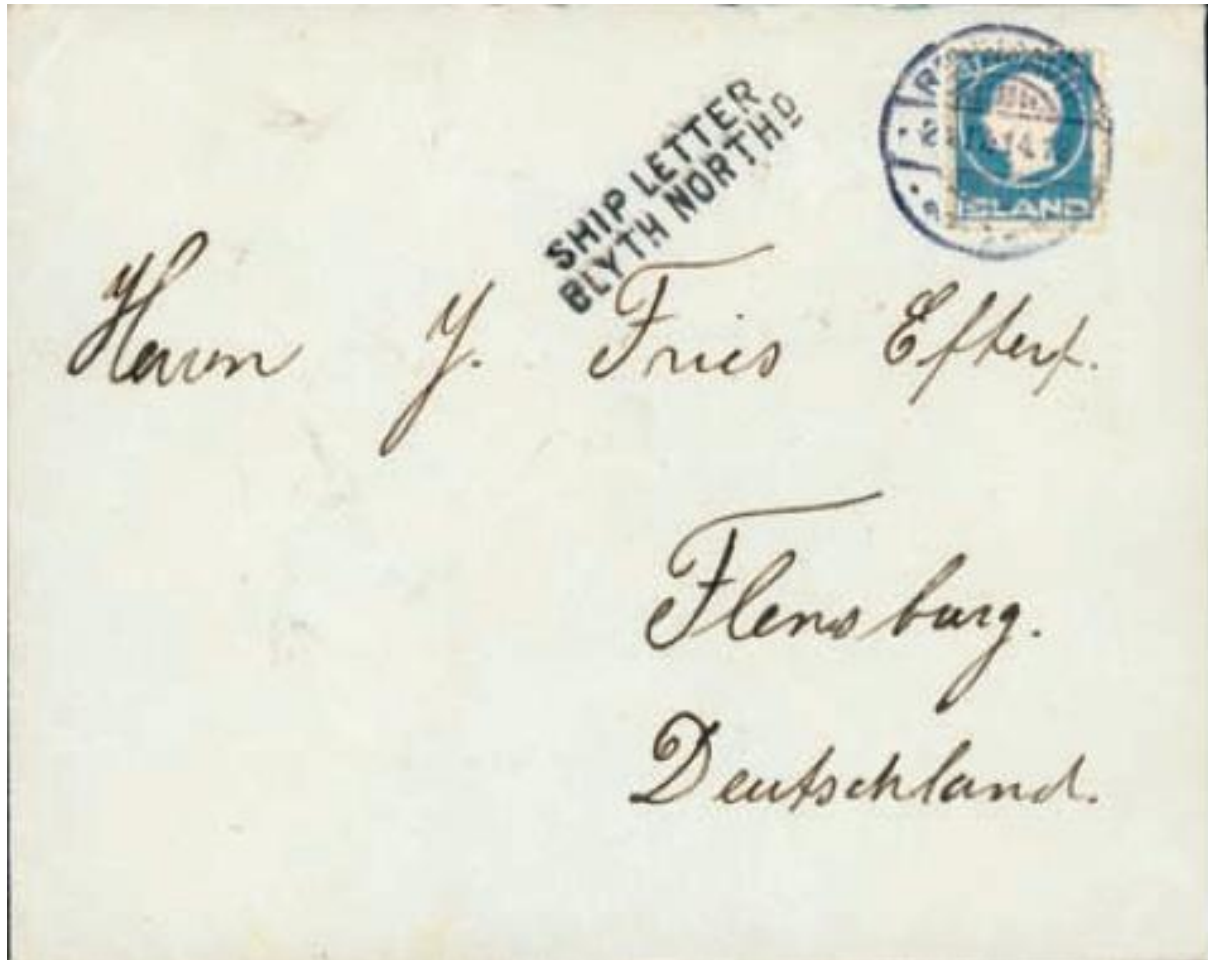 SHIP LETTER
BLYTH NORTHD
ISLAND
Herrn J. Fries Efterf.
Flensburg.
Deutschland.